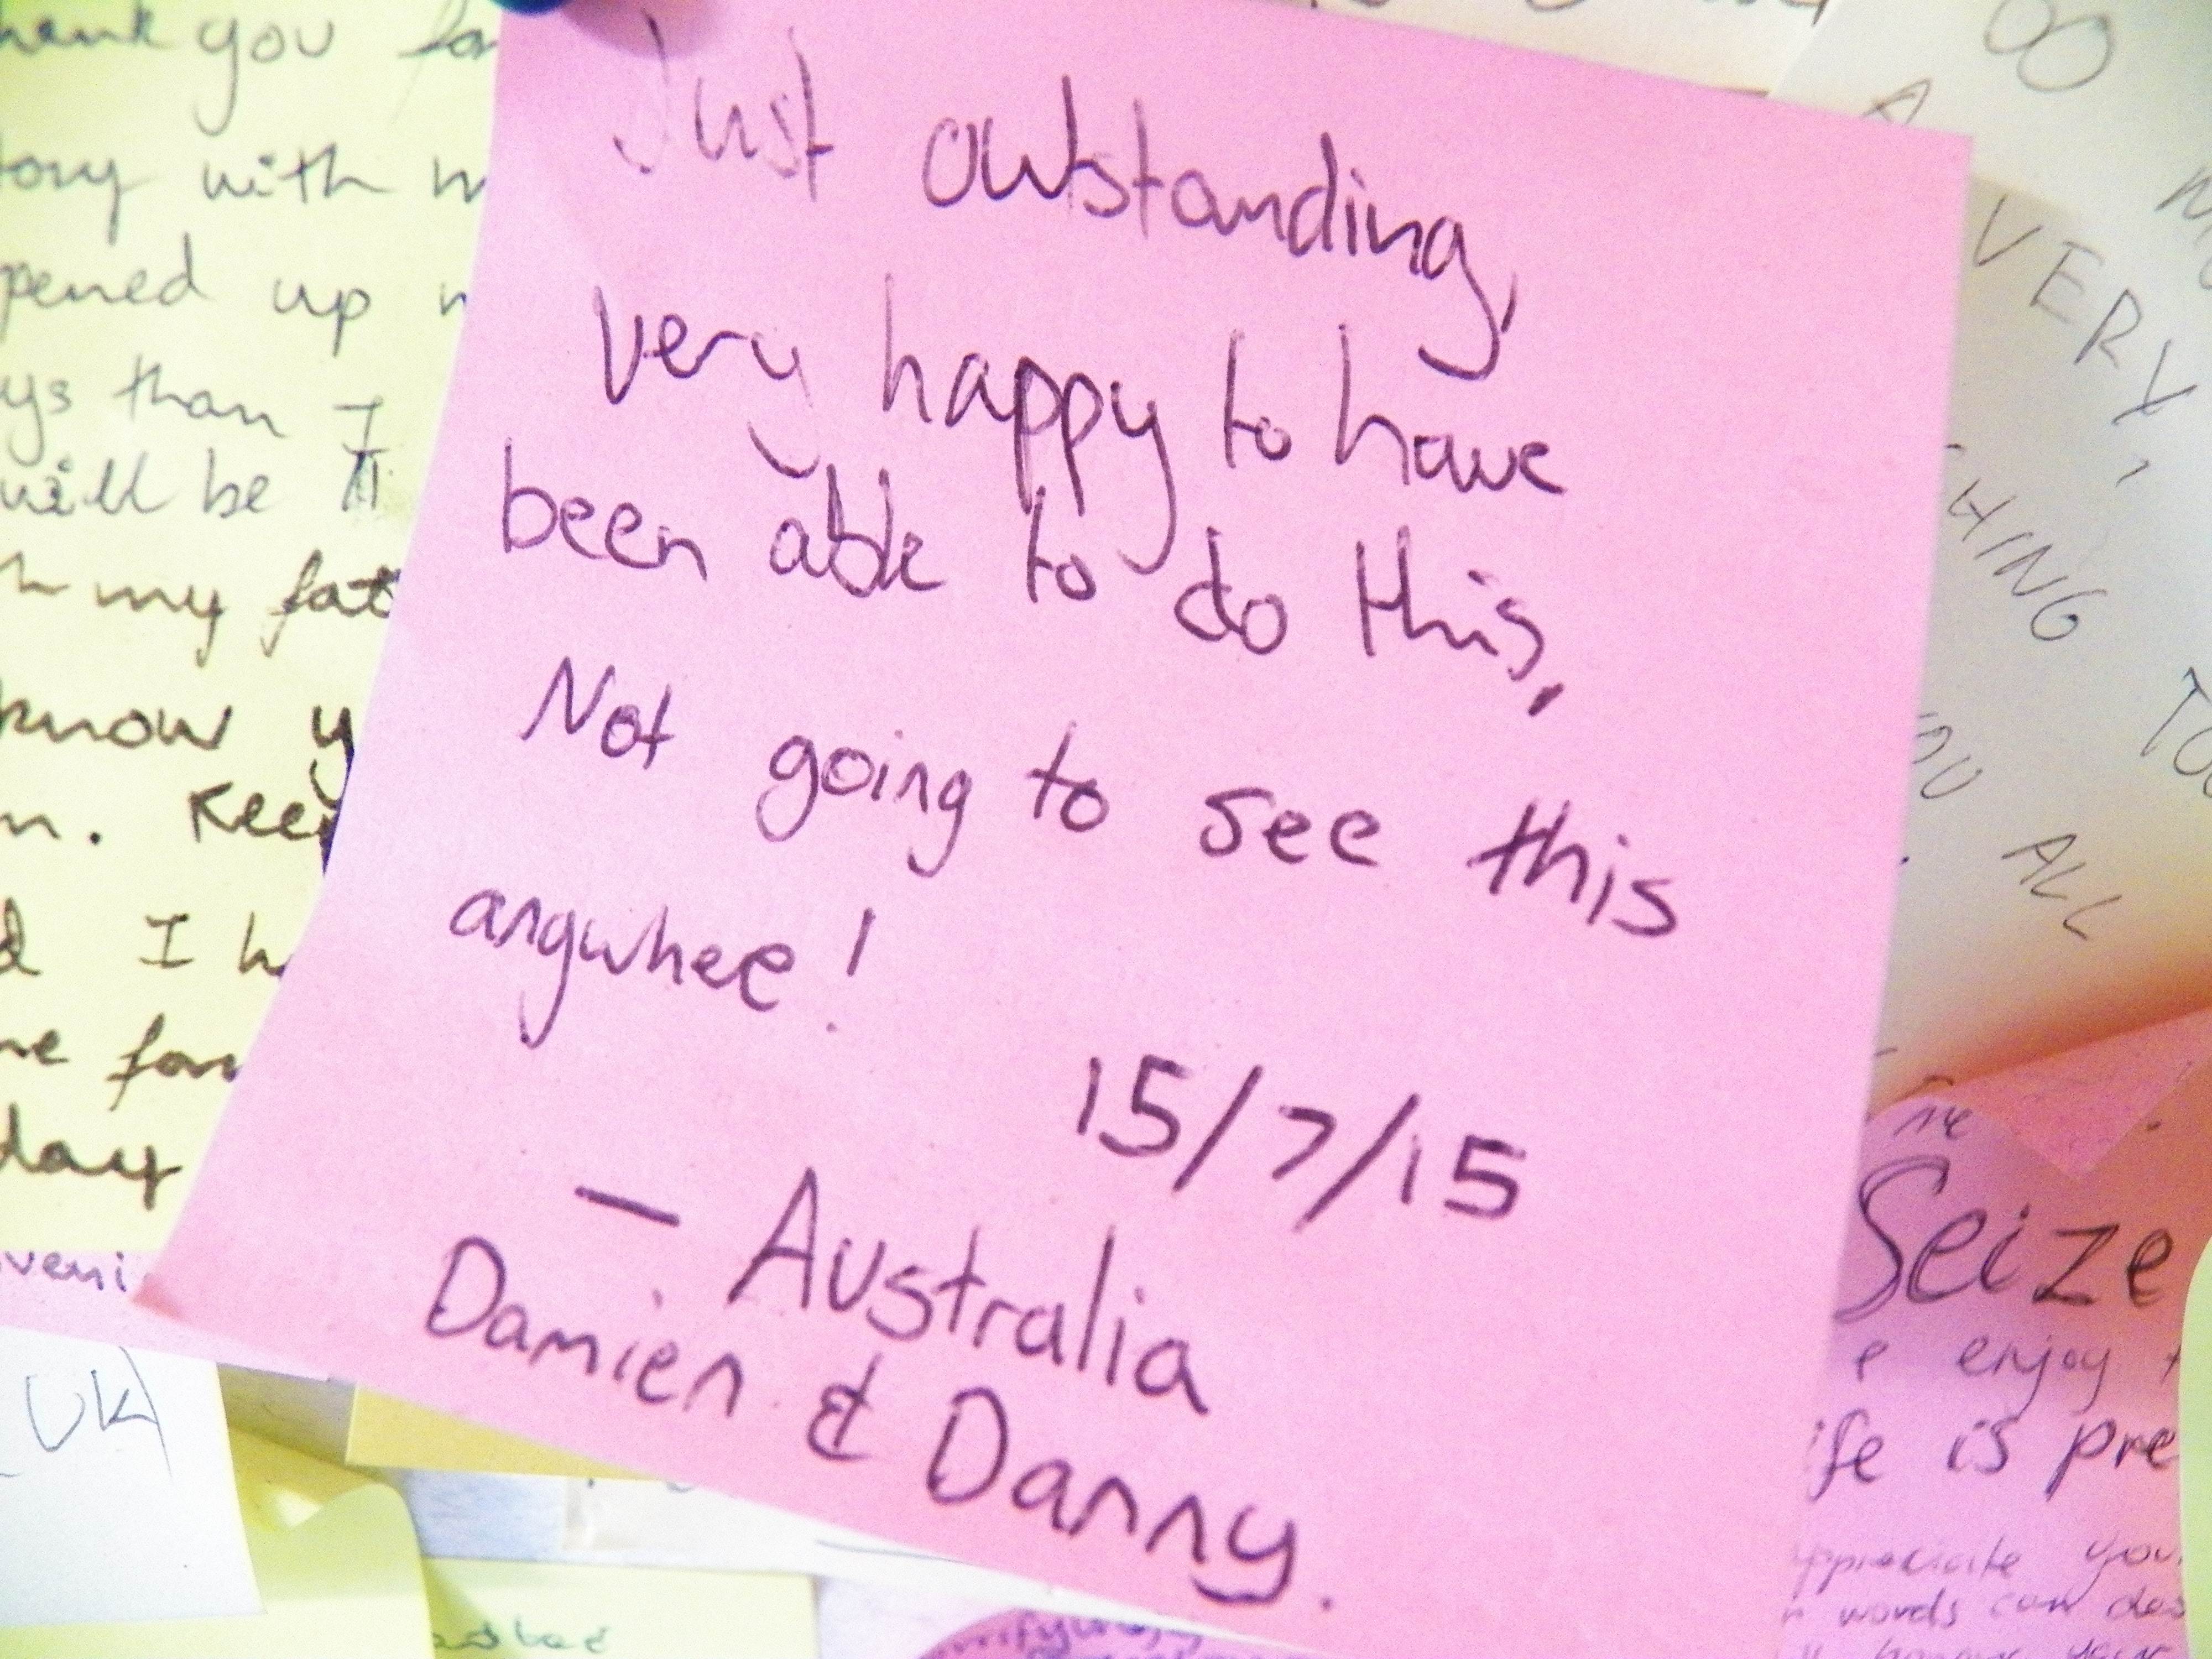 Just outstanding,
very happy to have
been able to do this,
Not going to see this
anywhee!
15/7/15
— Australia
Damien & Danny.
hank you for
tory with
pened up
ys than I
will be
my fat
know y
n. Keep
d I h
me for
day
veni
UK
VERY,
HING
TOO
YOU ALL
Seize
e enjoy
ife is pre
appreciate you
words can des